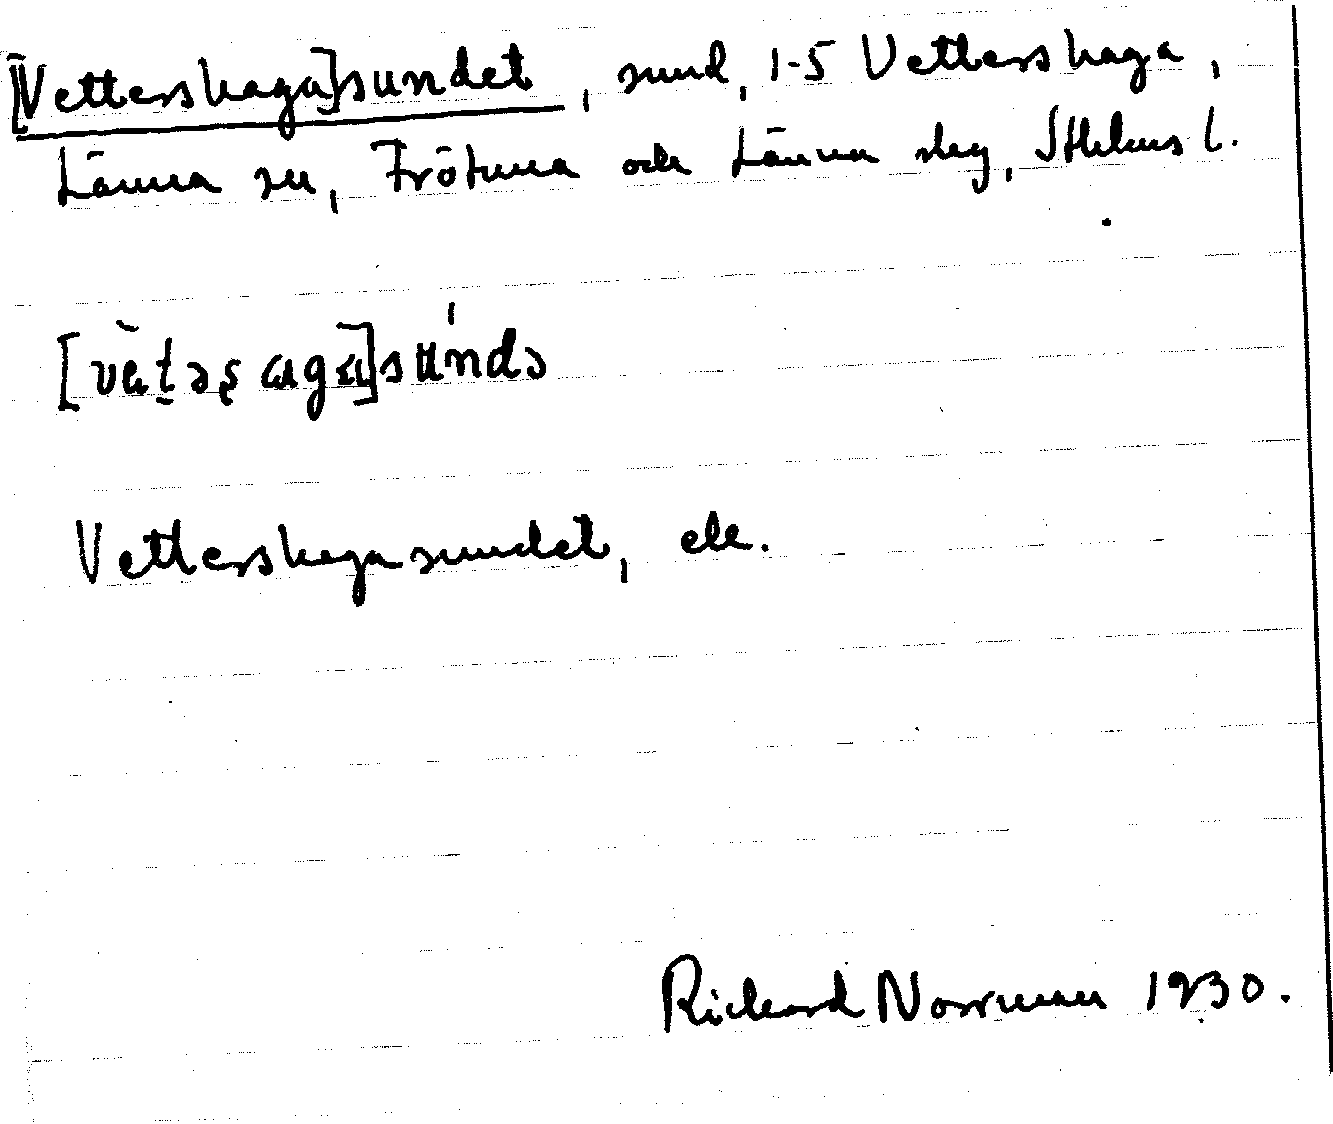 [Vettershaga]sundet, sund, 1-5 Vettershaga,
Länna sn, Frötuna och Länna skg, Sthlms l.
[vètəʂɑgɑ]súndə
Vettershagasundet, ek.
Rickard Norrman 1930.